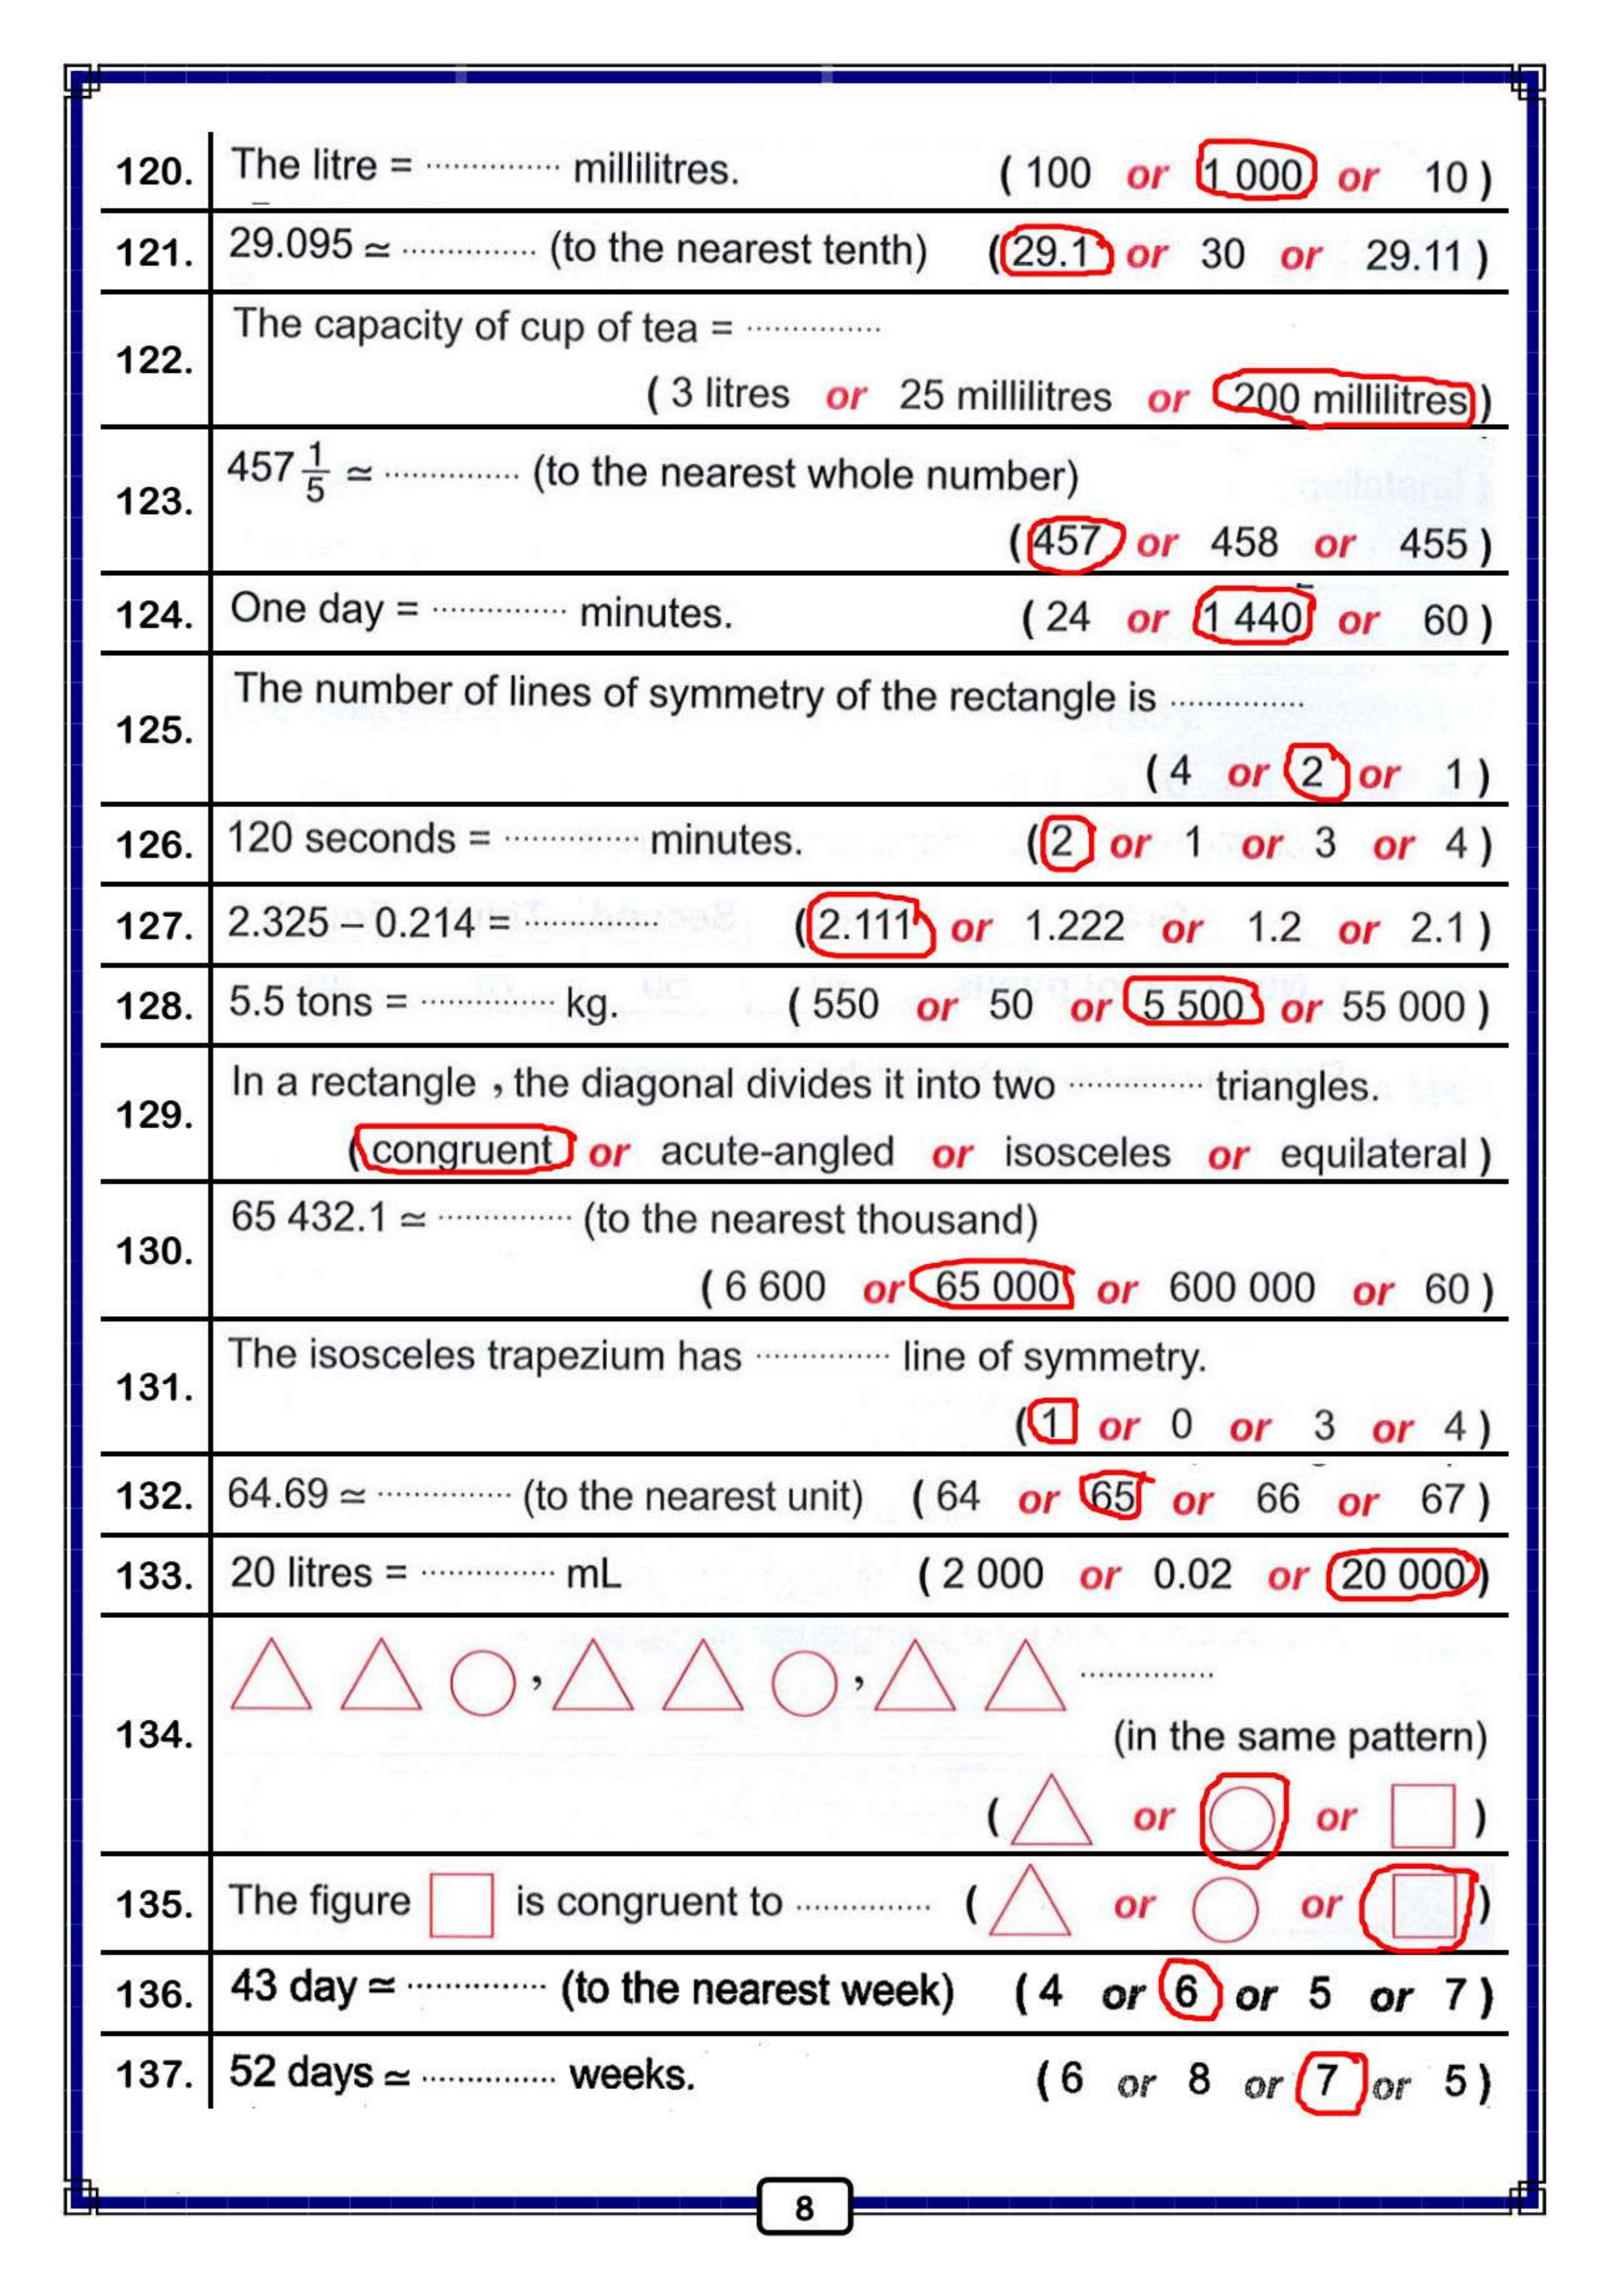 120. The litre = ............... millilitres. ( 100 or 1 000 or 10 )
121. 29.095 ≃ ............... (to the nearest tenth) ( 29.1 or 30 or 29.11 )
122. The capacity of cup of tea = ...............
( 3 litres or 25 millilitres or 200 millilitres )
123. 457 1/5 ≃ ............... (to the nearest whole number)
( 457 or 458 or 455 )
124. One day = ............... minutes. ( 24 or 1 440 or 60 )
125. The number of lines of symmetry of the rectangle is ...............
( 4 or 2 or 1 )
126. 120 seconds = ............... minutes. ( 2 or 1 or 3 or 4 )
127. 2.325 – 0.214 = ............... ( 2.111 or 1.222 or 1.2 or 2.1 )
128. 5.5 tons = ............... kg. ( 550 or 50 or 5 500 or 55 000 )
129. In a rectangle , the diagonal divides it into two ............... triangles.
( congruent or acute-angled or isosceles or equilateral )
130. 65 432.1 ≃ ............... (to the nearest thousand)
( 6 600 or 65 000 or 600 000 or 60 )
131. The isosceles trapezium has ............... line of symmetry.
( 1 or 0 or 3 or 4 )
132. 64.69 ≃ ............... (to the nearest unit) ( 64 or 65 or 66 or 67 )
133. 20 litres = ............... mL ( 2 000 or 0.02 or 20 000 )
134. , , ...............
(in the same pattern)
( or or )
135. The figure is congruent to ............... ( or or )
136. 43 day ≃ ............... (to the nearest week) ( 4 or 6 or 5 or 7 )
137. 52 days ≃ ............... weeks. ( 6 or 8 or 7 or 5 )
8